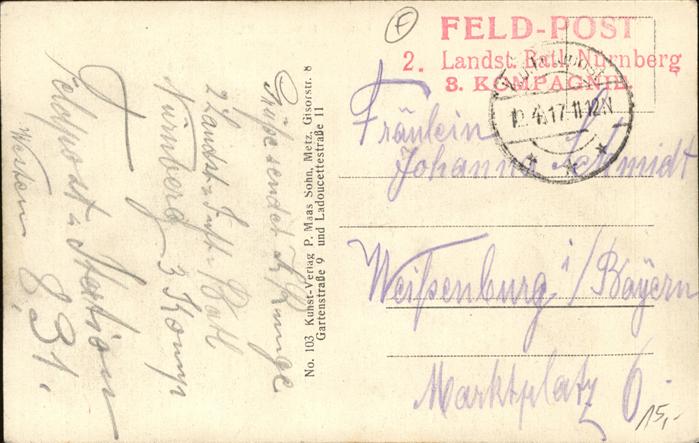 FELD-POST
2. Landst. Batl. Nürnberg
3. KOMPAGNIE.
12.4.17.11-12N
Fräulein
Johanna Schmidt
Weißenburg i/Bayern
Marktplatz 6.
15,-
F
No. 103 Kunst-Verlag P. Maas Sohn, Metz, Gisorstr. 8
Gartenstraße 9 und Ladoucettestraße 11
Grüße sendet
2 Landst. Inft. Batl
Nürnberg 3 Komp
Feldpost Station
Westen 831.